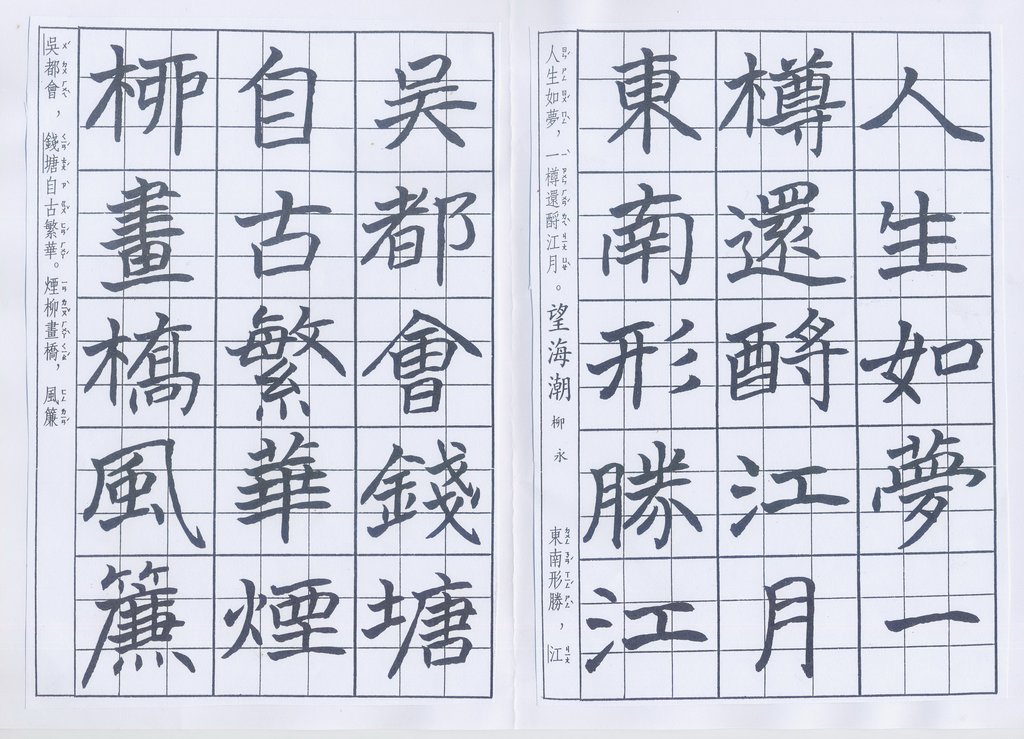 人生如夢一
樽還酹江月
東南形勝江
人生如夢，一樽還酹江月。望海潮 柳永 東南形勝，江
吳都會錢塘
自古繁華煙
柳畫橋風簾
吳都會，錢塘自古繁華。煙柳畫橋，風簾